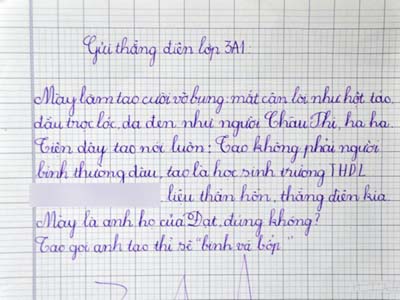 Gửi thằng điên lớp 3A1
Mày làm tao cười vỡ bụng, mắt cận lòi như hột táo,
đầu trọc lóc, da đen như người Châu Thi, ha ha.
Tiện đây tao nói luôn: Tao không phải người
bình thường đâu, tao là học sinh trường THDL
liệu thần hồn, thằng điên kia
Mày là anh họ của Đạt, đúng không?
Tao gọi anh tao thì sẽ "bình vá bốp"